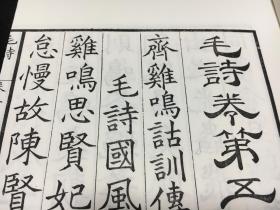 毛詩卷第五
齊雞鳴詁訓傳
毛詩國風
雞鳴思賢妃
怠慢故陳賢
毛詩